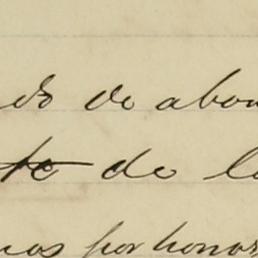 do de abon
te de la
nos por honor